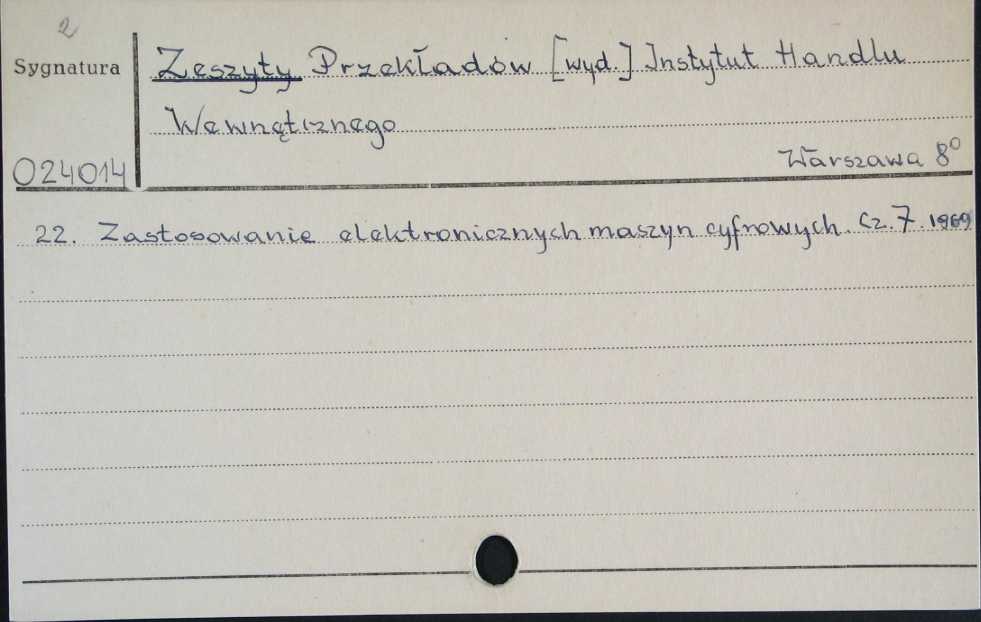 2
Sygnatura
Zeszyty Przekładów [wyd.] Instytut Handlu
Wewnętrznego
024014
Warszawa 8°
22. Zastosowanie elektronicznych maszyn cyfrowych. Cz. 7. 1969